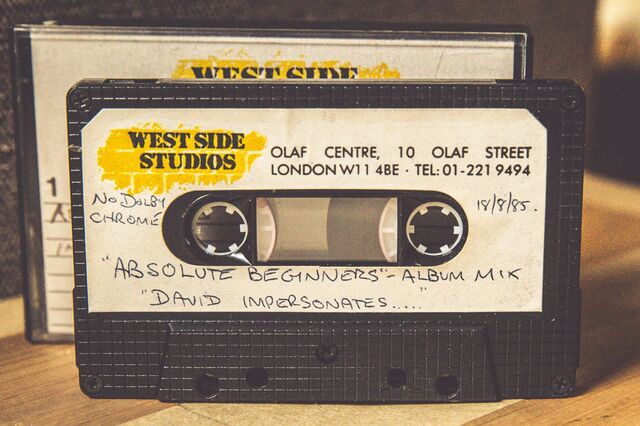 WEST SIDE
1
WEST SIDE
STUDIOS
OLAF CENTRE, 10 OLAF STREET
LONDON W11 4BE · TEL: 01-221 9494
NO DOLBY
CHROME
18/8/85.
"ABSOLUTE BEGINNERS" - ALBUM MIX
"DAVID IMPERSONATES....."